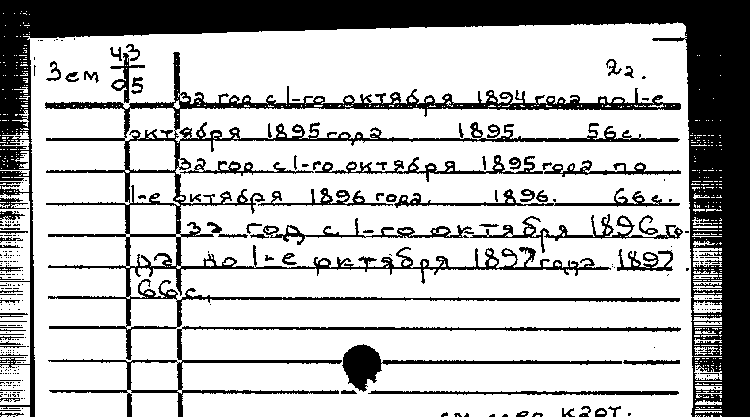 Зем 43/05 2а.
за год с 1-го октября 1894 года по 1-е
октября 1895 года 1895. 56с.
за год с 1-го октября 1895 года по
1-е октября 1896 года. 1896. 66с.
за год с 1-го октября 1896 го-
да по 1-е октября 1897 года 1897.
66с.
см. след. карт.